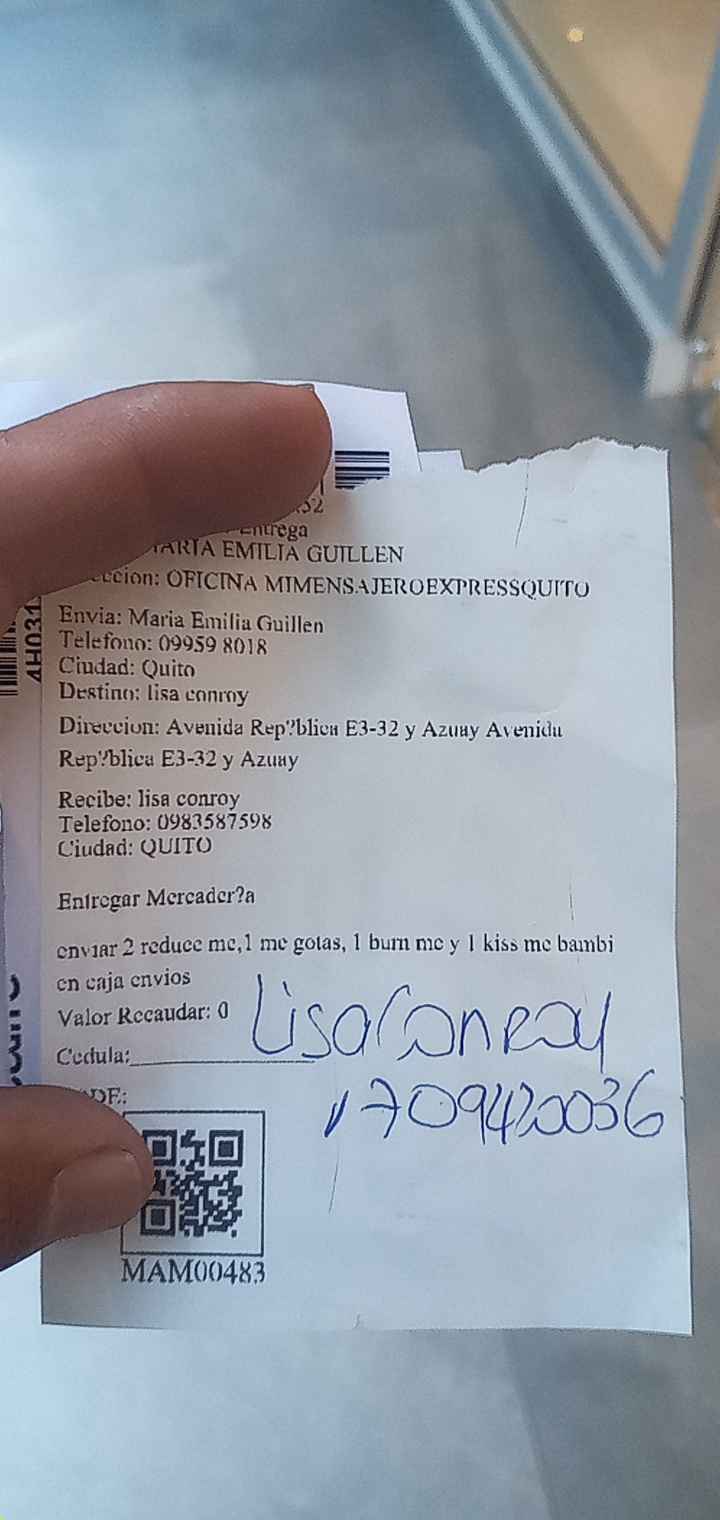 Entrega
MARIA EMILIA GUILLEN
OFICINA MIMENSAJEROEXPRESSQUITO
Envia: Maria Emilia Guillen
Telefono: 09959 8018
Ciudad: Quito
Destino: lisa conroy
Direccion: Avenida Rep?blica E3-32 y Azuay Avenida
Rep?blica E3-32 y Azuay
Recibe: lisa conroy
Telefono: 0983587598
Ciudad: QUITO
Entregar Mercader?a
enviar 2 reduce me,1 me gotas, 1 burn me y 1 kiss me bambi
en caja envios
Valor Recaudar: 0
Lisa Conroy
Cedula:
1709420036
MAM00483
4H031